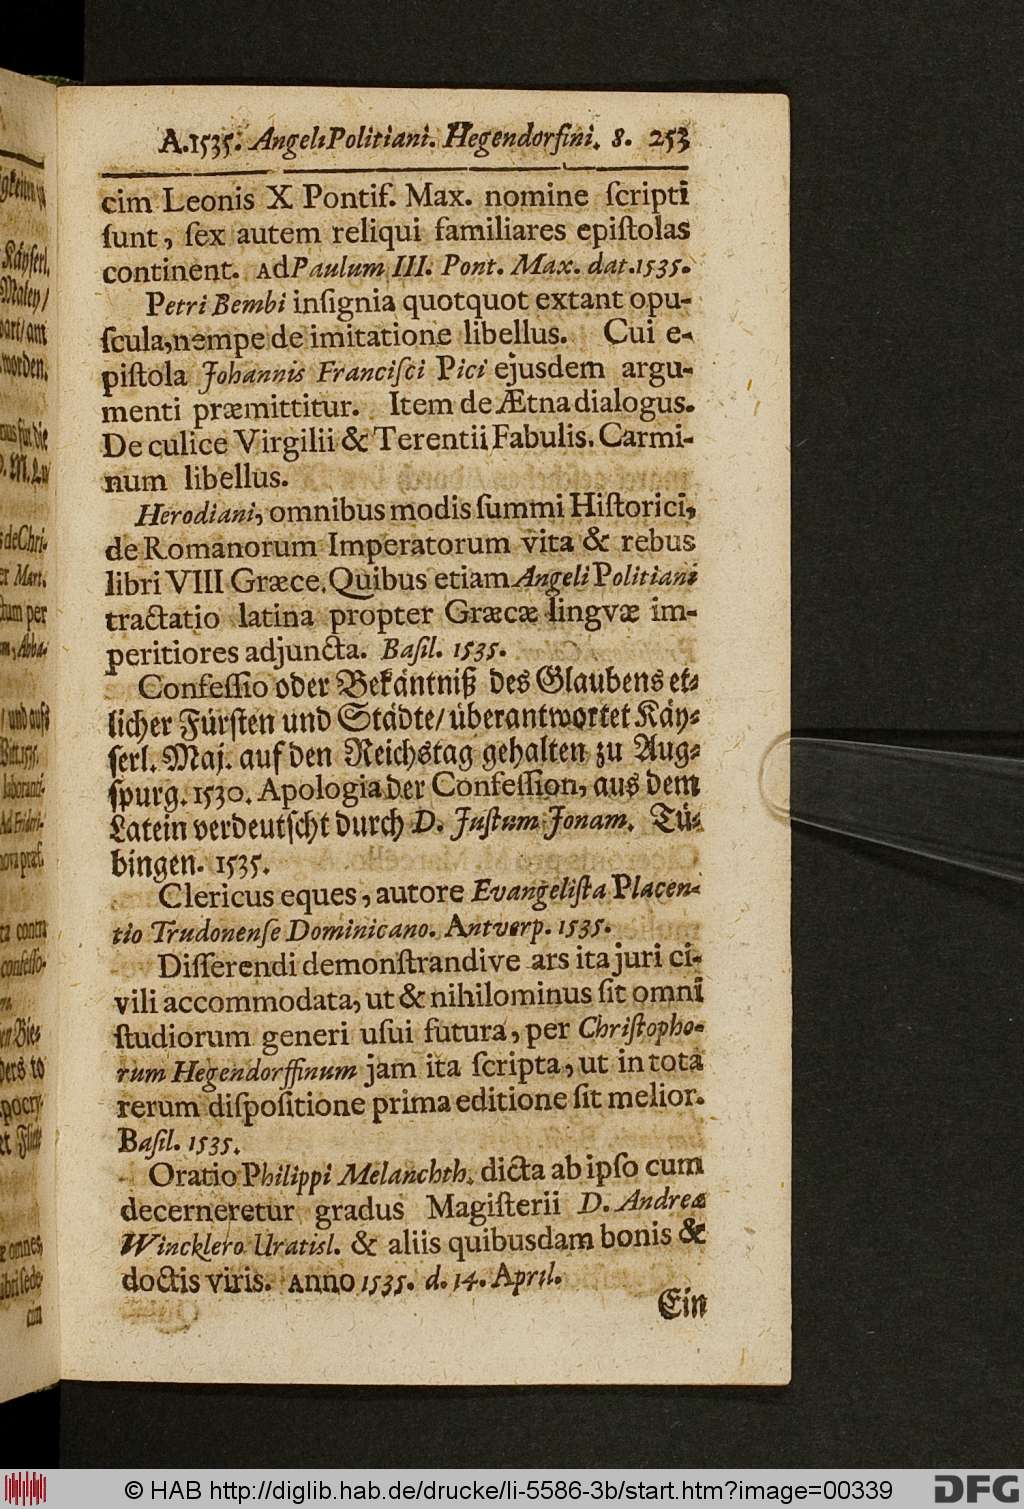 A. 1535. Angeli Politiani. Hegendorfini. 8. 253
cim Leonis X Pontif. Max. nomine ſcripti
ſunt, ſex autem reliqui familiares epiſtolas
continent. Ad Paulum III. Pont. Max. dat. 1535.
Petri Bembi inſignia quotquot extant opu-
ſcula, nempe de imitatione libellus. Cui e-
piſtola Johannis Franciſci Pici ejusdem argu-
menti præmittitur. Item de Ætna dialogus.
De culice Virgilii & Terentii Fabulis. Carmi-
num libellus.
Herodiani, omnibus modis ſummi Hiſtorici,
de Romanorum Imperatorum vita & rebus
libri VIII Græce. Quibus etiam Angeli Politiani
tractatio latina propter Græcæ lingvæ im-
peritiores adjuncta. Baſil. 1535.
Confeſſio oder Bekäntniß des Glaubens et-
licher Fürſten und Städte/ überantwortet Käy-
ſerl. Maj. auf den Reichstag gehalten zu Aug-
ſpurg. 1530. Apologia der Confeſſion, aus dem
Latein verdeutſcht durch D. Juſtum Jonam. Tü-
bingen. 1535.
Clericus eques, autore Evangeliſta Placen-
tio Trudonenſe Dominicano. Antverp. 1535.
Diſſerendi demonſtrandive ars ita juri ci-
vili accommodata, ut & nihilominus ſit omni
ſtudiorum generi uſui futura, per Chriſtopho-
rum Hegendorffinum jam ita ſcripta, ut in tota
rerum diſpoſitione prima editione ſit melior.
Baſil. 1535.
Oratio Philippi Melanchth. dicta ab ipſo cum
decerneretur gradus Magiſterii D. Andreæ
Wincklero Uratisl. & aliis quibusdam bonis &
doctis viris. Anno 1535. d. 14. April.
Ein
© HAB http://diglib.hab.de/drucke/li-5586-3b/start.htm?image=00339
DFG